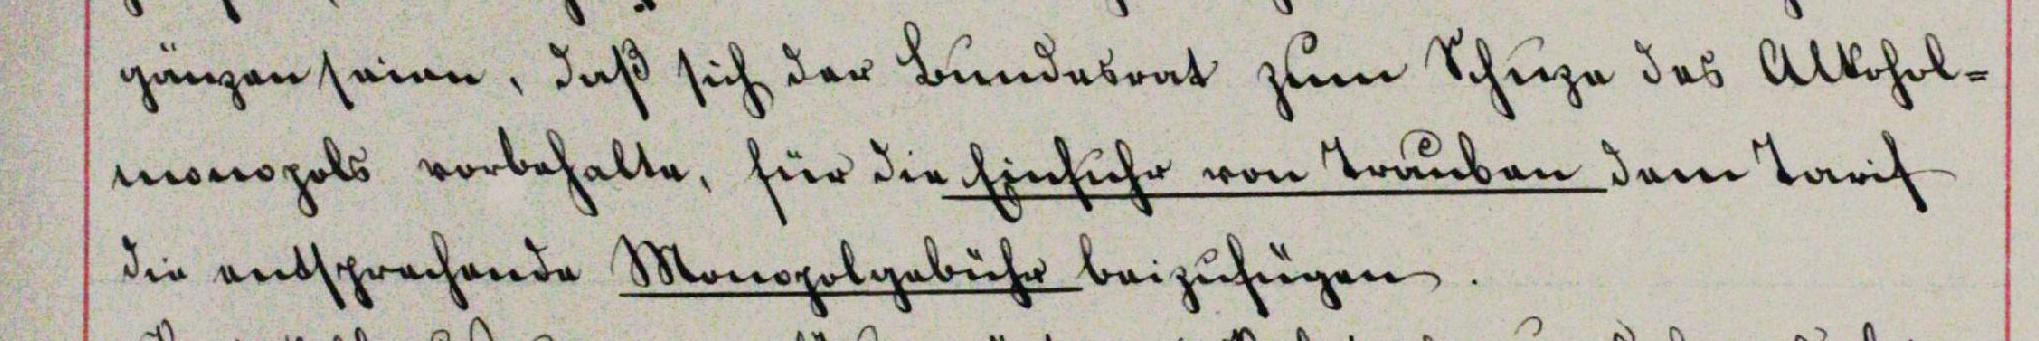 gänzen seien, daß sich der Bundesrat zum Schuze des Alkohol-
monopols vorbehalte, für die Einfuhr von Trauben dem Tarif
die entsprechende Monopolgebühr beizufügen.